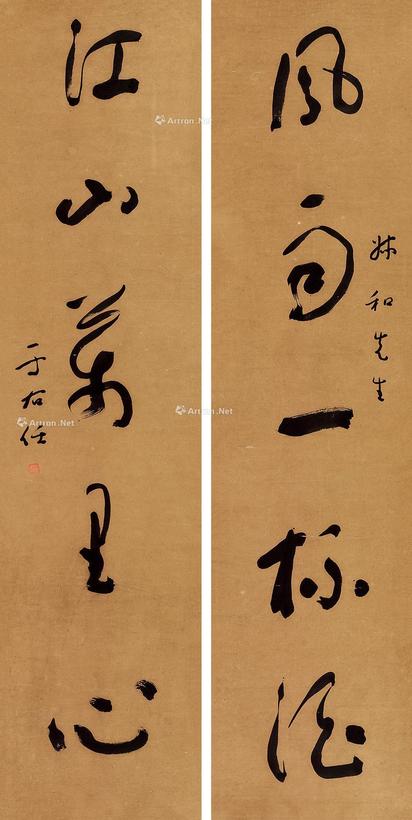 風雨一杯酒
和先生
江山萬里心
于右任
Artron.Net
Artron.Net
Artron.Net